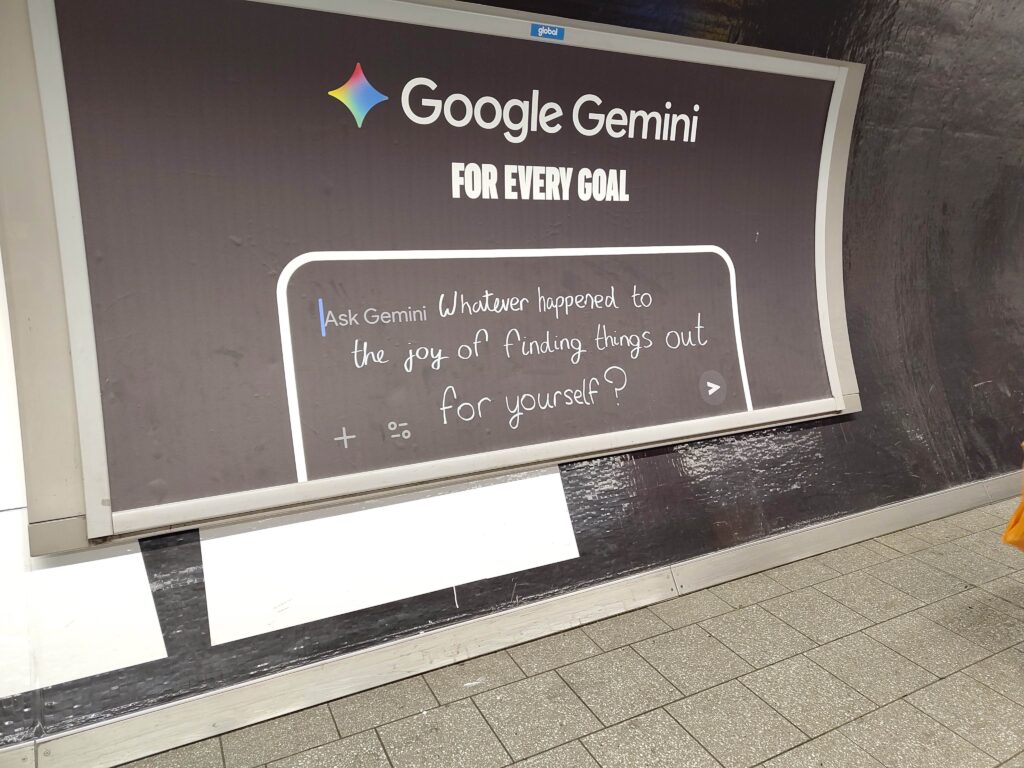 global
Google Gemini
FOR EVERY GOAL
Ask Gemini Whatever happened to
the joy of finding things out
for yourself?